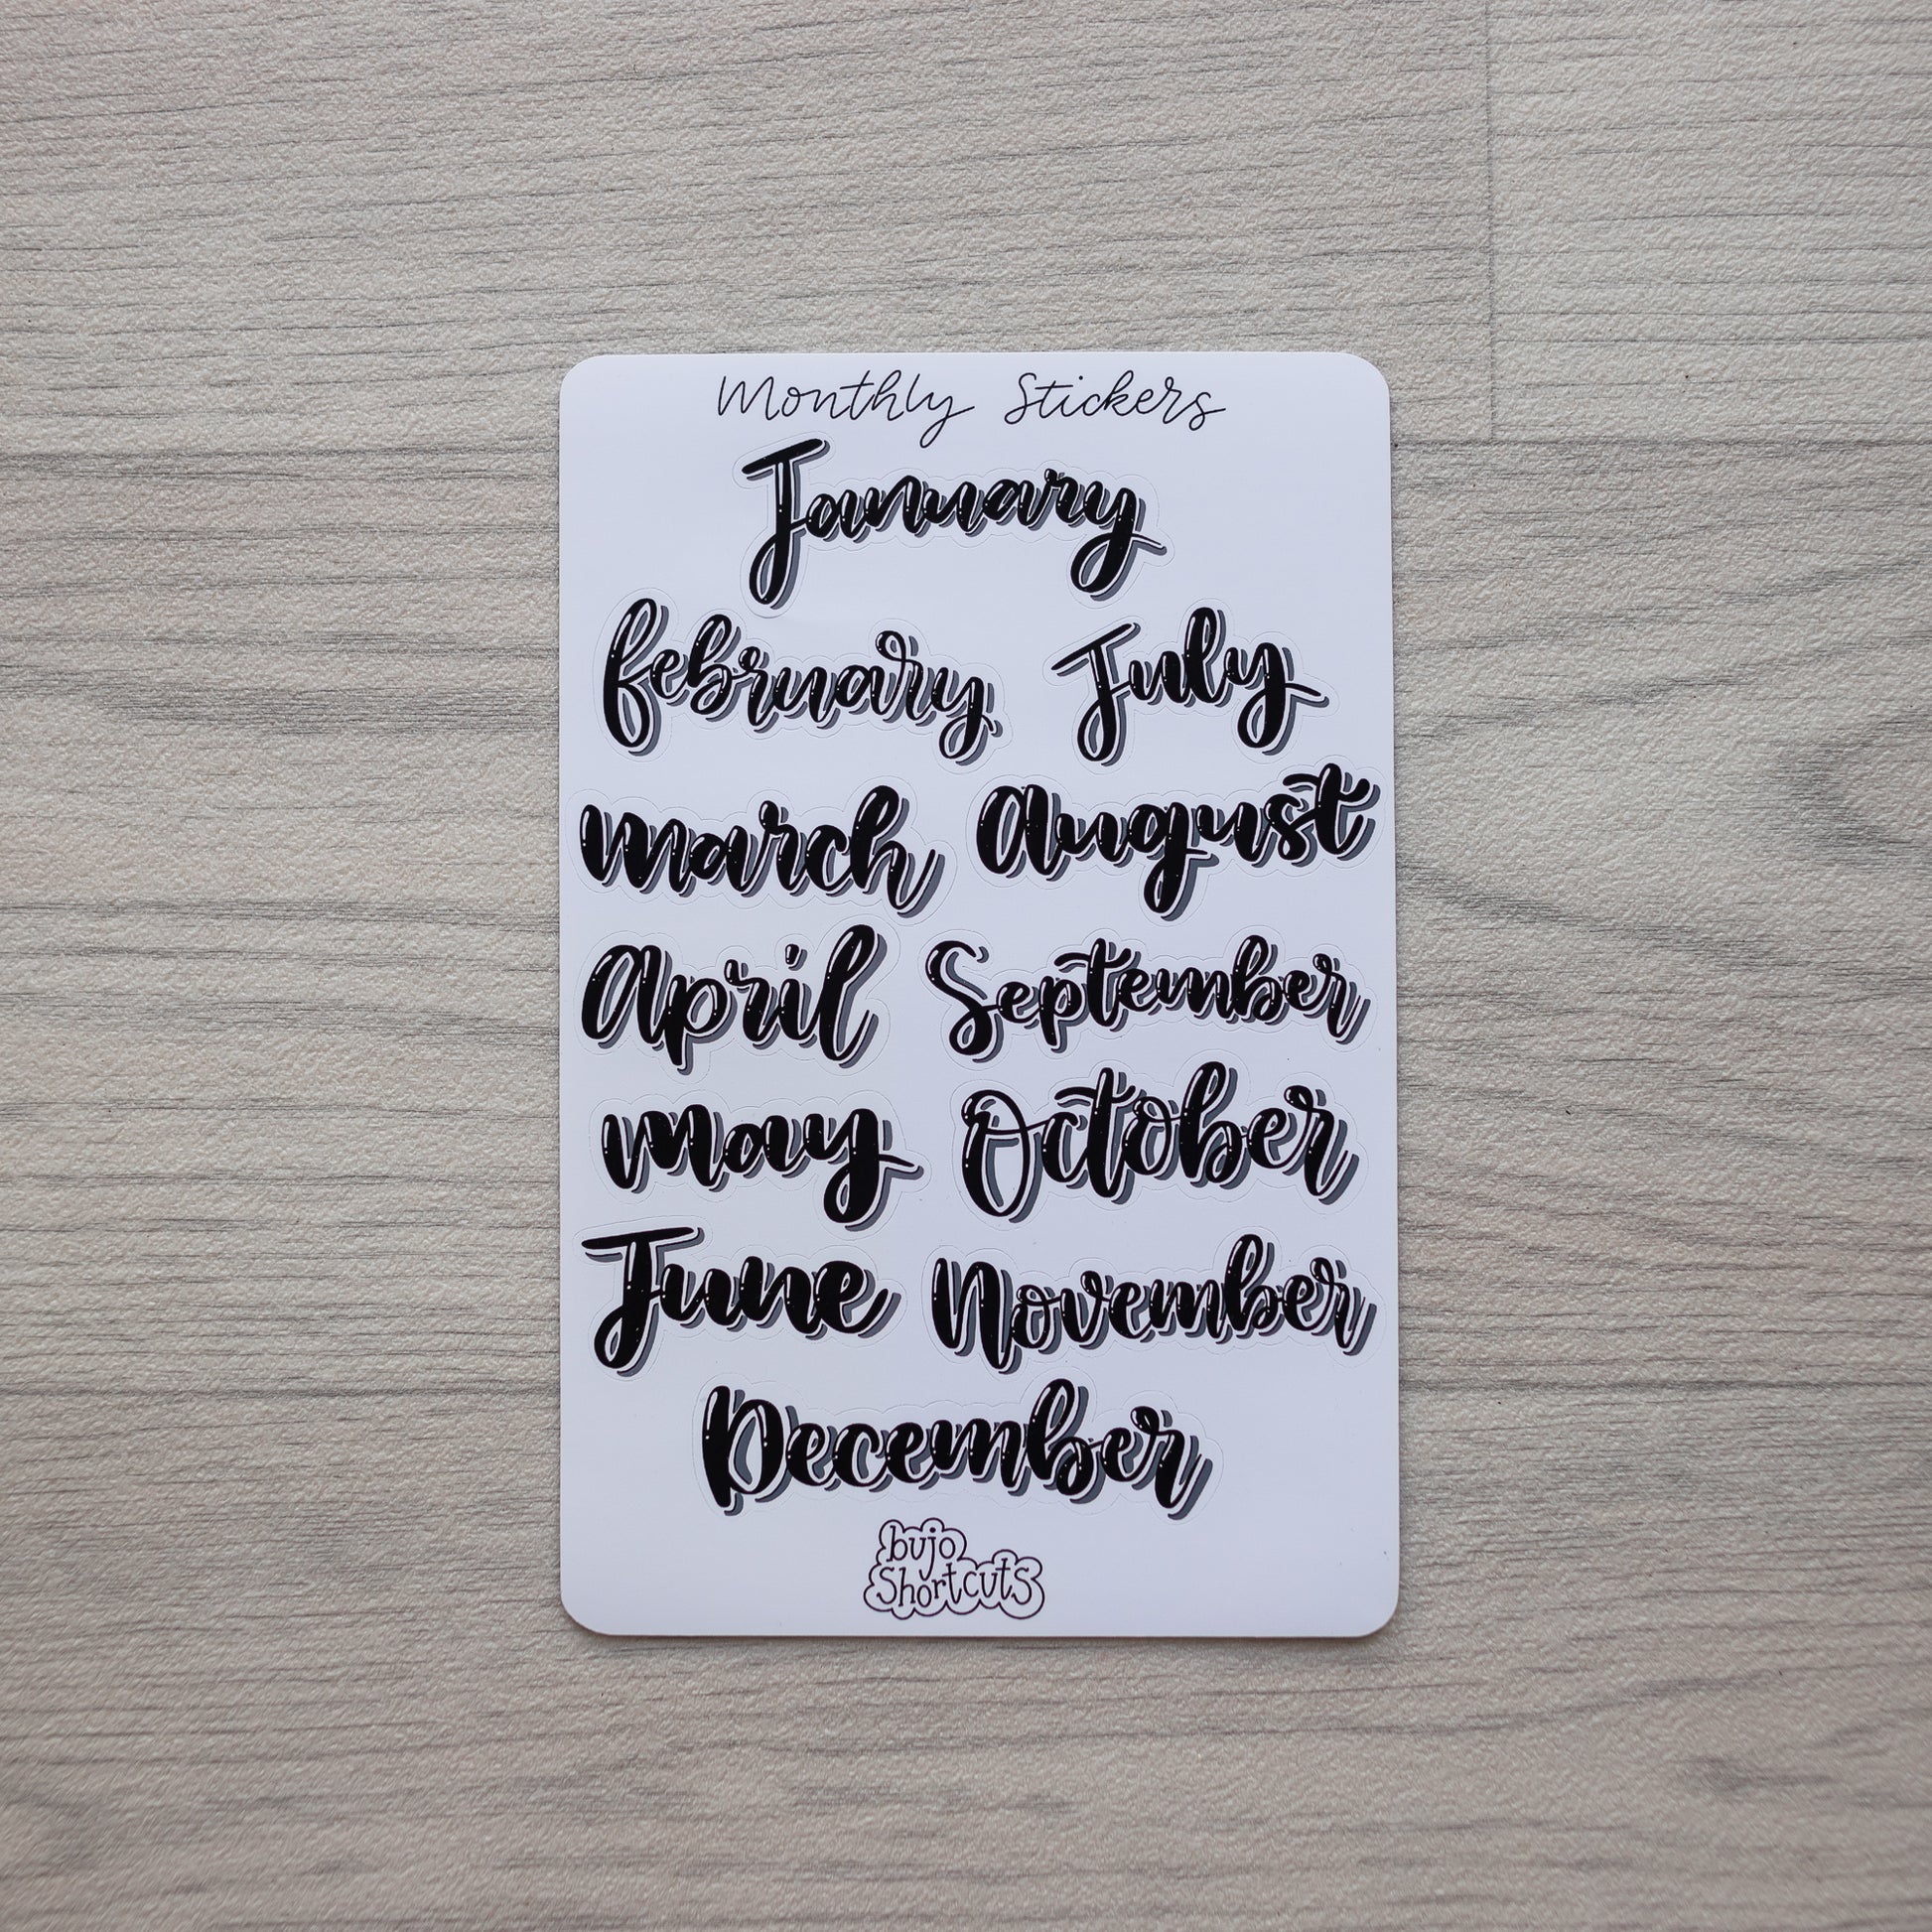 Monthly Stickers
January
february July
march August
April September
may October
June November
December
bujo
Shortcuts